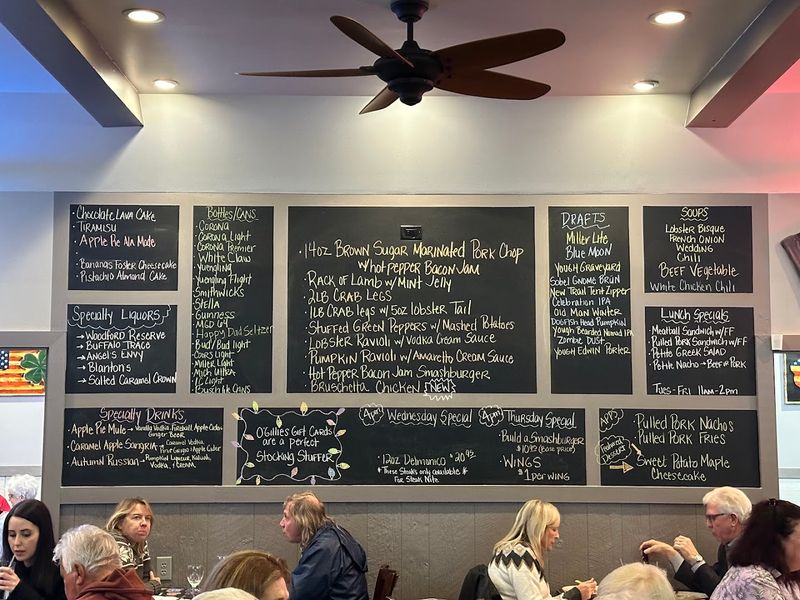 • Chocolate Lava Cake
• Tiramisu
• Apple Pie Ala Mode
• Bananas Foster Cheesecake
• Pistachio Almond Cake
Specialty Liquors
→ Woodford Reserve
→ Buffalo Trace
→ Angel's Envy
→ Blantons
→ Salted Caramel Crown
Bottles/Cans
• Corona
• Corona Light
• Corona Premier
• White Claw
• Yuengling
• Yuengling Flight
• Smithwicks
• Stella
• Guinness
• MGD 64
• Happy Dad Seltzer
• Bud/Bud Light
• Coors Light
• Miller Light
• Mich Ultra
• IC Light
• Busch Lt Cans
• 14oz Brown Sugar Marinated Pork Chop
w/hot pepper Bacon Jam
• Rack of Lamb w/Mint Jelly
• 2LB Crab Legs
• 1LB Crab legs w/5oz lobster Tail
• Stuffed Green Peppers w/Mashed Potatoes
• Lobster Ravioli w/Vodka Cream Sauce
• Pumpkin Ravioli w/Amaretto Cream Sauce
• Hot Pepper Bacon Jam Smashburger
• Bruschetta Chicken NEW
Drafts
Miller Lite
Blue Moon
Yough Graveyard
Sobel Gnome Brün
New Trail Tent Zipper
Celebration IPA
Old Man Winter
Dogfish Head Pumpkin
Yough Bearded Nomad IPA
Zombie Dust
Yough Edwin Porter
Soups
Lobster Bisque
French Onion
Wedding
Chili
Beef Vegetable
White Chicken Chili
Lunch Specials
• Meatball Sandwich w/FF
• Pulled Pork Sandwich w/FF
• Petite Greek Salad
• Petite Nacho → Beef or Pork
Tues-Fri 11am-2pm
Specialty Drinks
• Apple Pie Mule → Vanilla Vodka, Fireball, Apple Cider, Ginger Beer
• Caramel Apple Sangria → Caramel Vodka, Pinot Grigio & Apple Cider
• Autumn Russian → Pumpkin Liqueur, Kahlua, Vodka, & Cream
O'Gillies Gift Cards
are a perfect
Stocking Stuffer
4pm Wednesday Special
• 12oz Delmonico • $20.95
* These steaks only available *
For Steak Nite
4pm Thursday Special
• Build a Smashburger
$10.95 (Base price)
• Wings
$1 per wing
Apps
• Pulled Pork Nachos
• Pulled Pork Fries
Featured
Dessert
• Sweet Potato Maple
Cheesecake